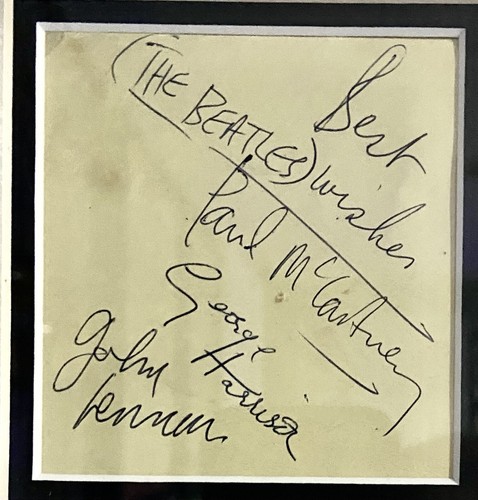 Best
wishes
(THE BEATLES)
Paul McCartney
George
Harrison
John
Lennon